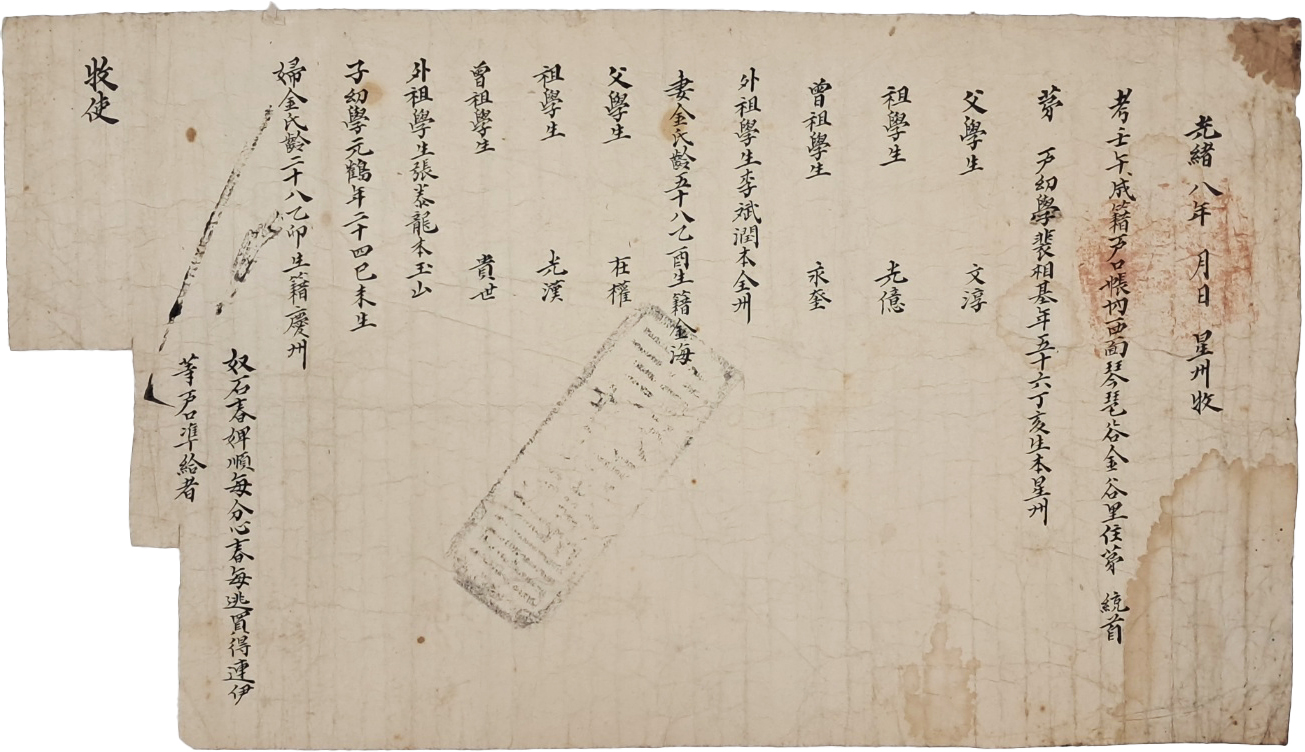 光緖八年 月日 星州牧
考壬午成籍戶口帳內西面琴琶谷金谷里住苐 統首
苐 戶幼學裵相基年五十六丁亥生本星州
父學生 文淳
祖學生 光億
曾祖學生 永奎
外祖學生李斌潤本全州
妻金氏齡五十八乙酉生籍金海
父學生 在權
祖學生 光漢
曾祖學生 貴世
外祖學生張泰龍本玉山
子幼學元鶴年二十四己未生
婦金氏齡二十八乙卯生籍慶州
奴石春婢順每分心春每逃買得連伊
等戶口准給者
牧使